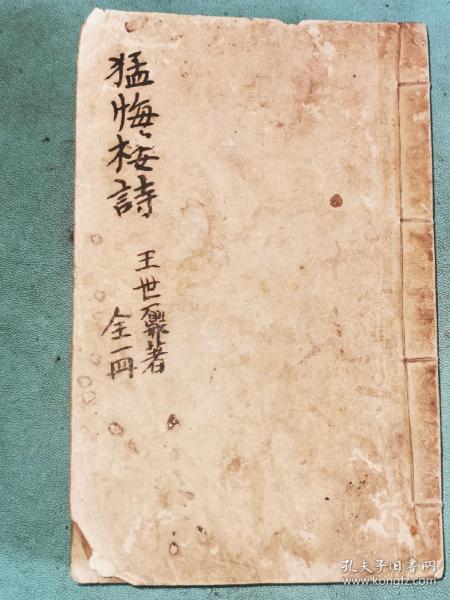 猛悔楼詩
王世鼐著
全一冊
孔夫子旧书网
www.kongfz.com